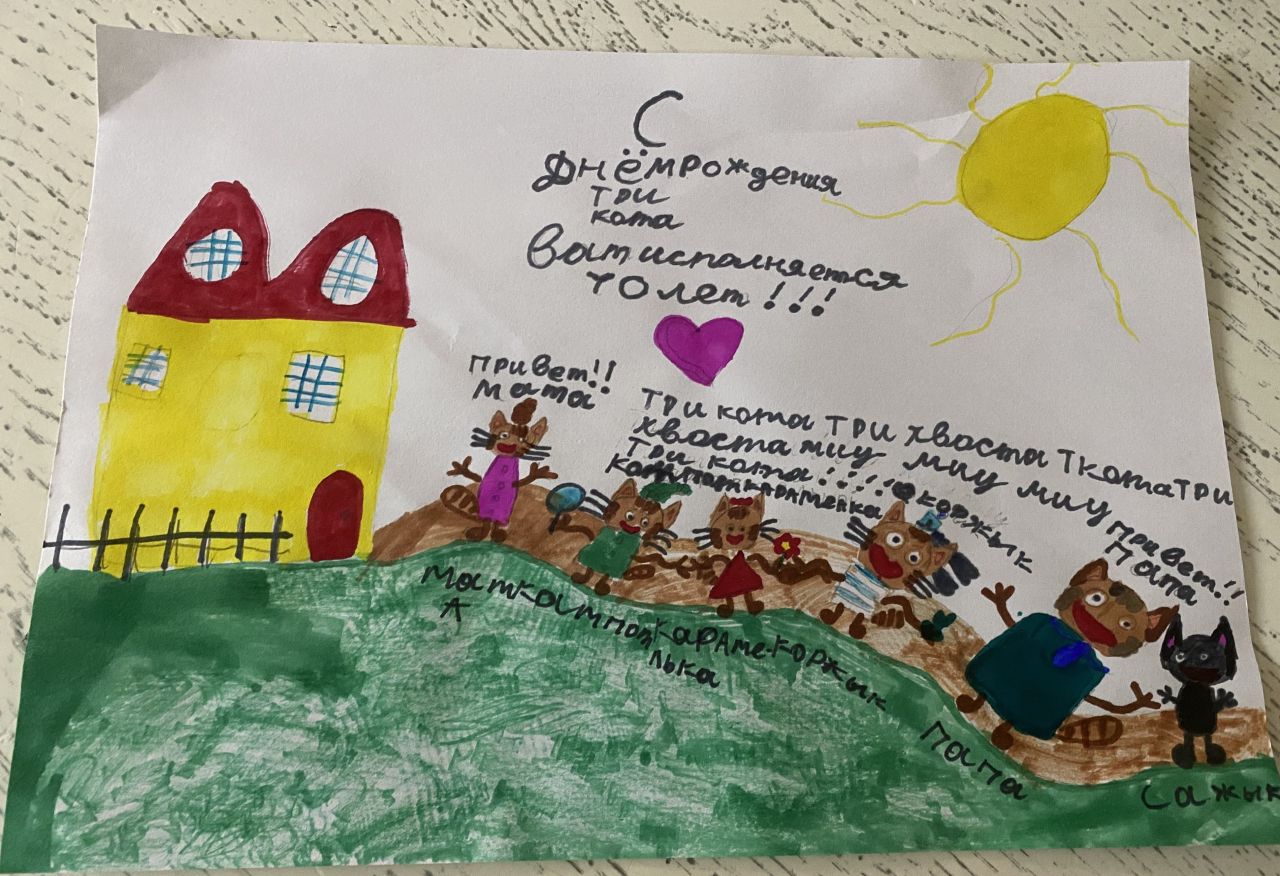 С
Днём рождения
три
кота
Вам исполняется
10 лет!!!
Привет!!
мама
Три кота три хвоста Ткота три
хвоста миу миу миу
Три кота!!!!
коржык
Привет!!
Папа
мам
а
компот
караме
лька
коржык
папа
Сажык